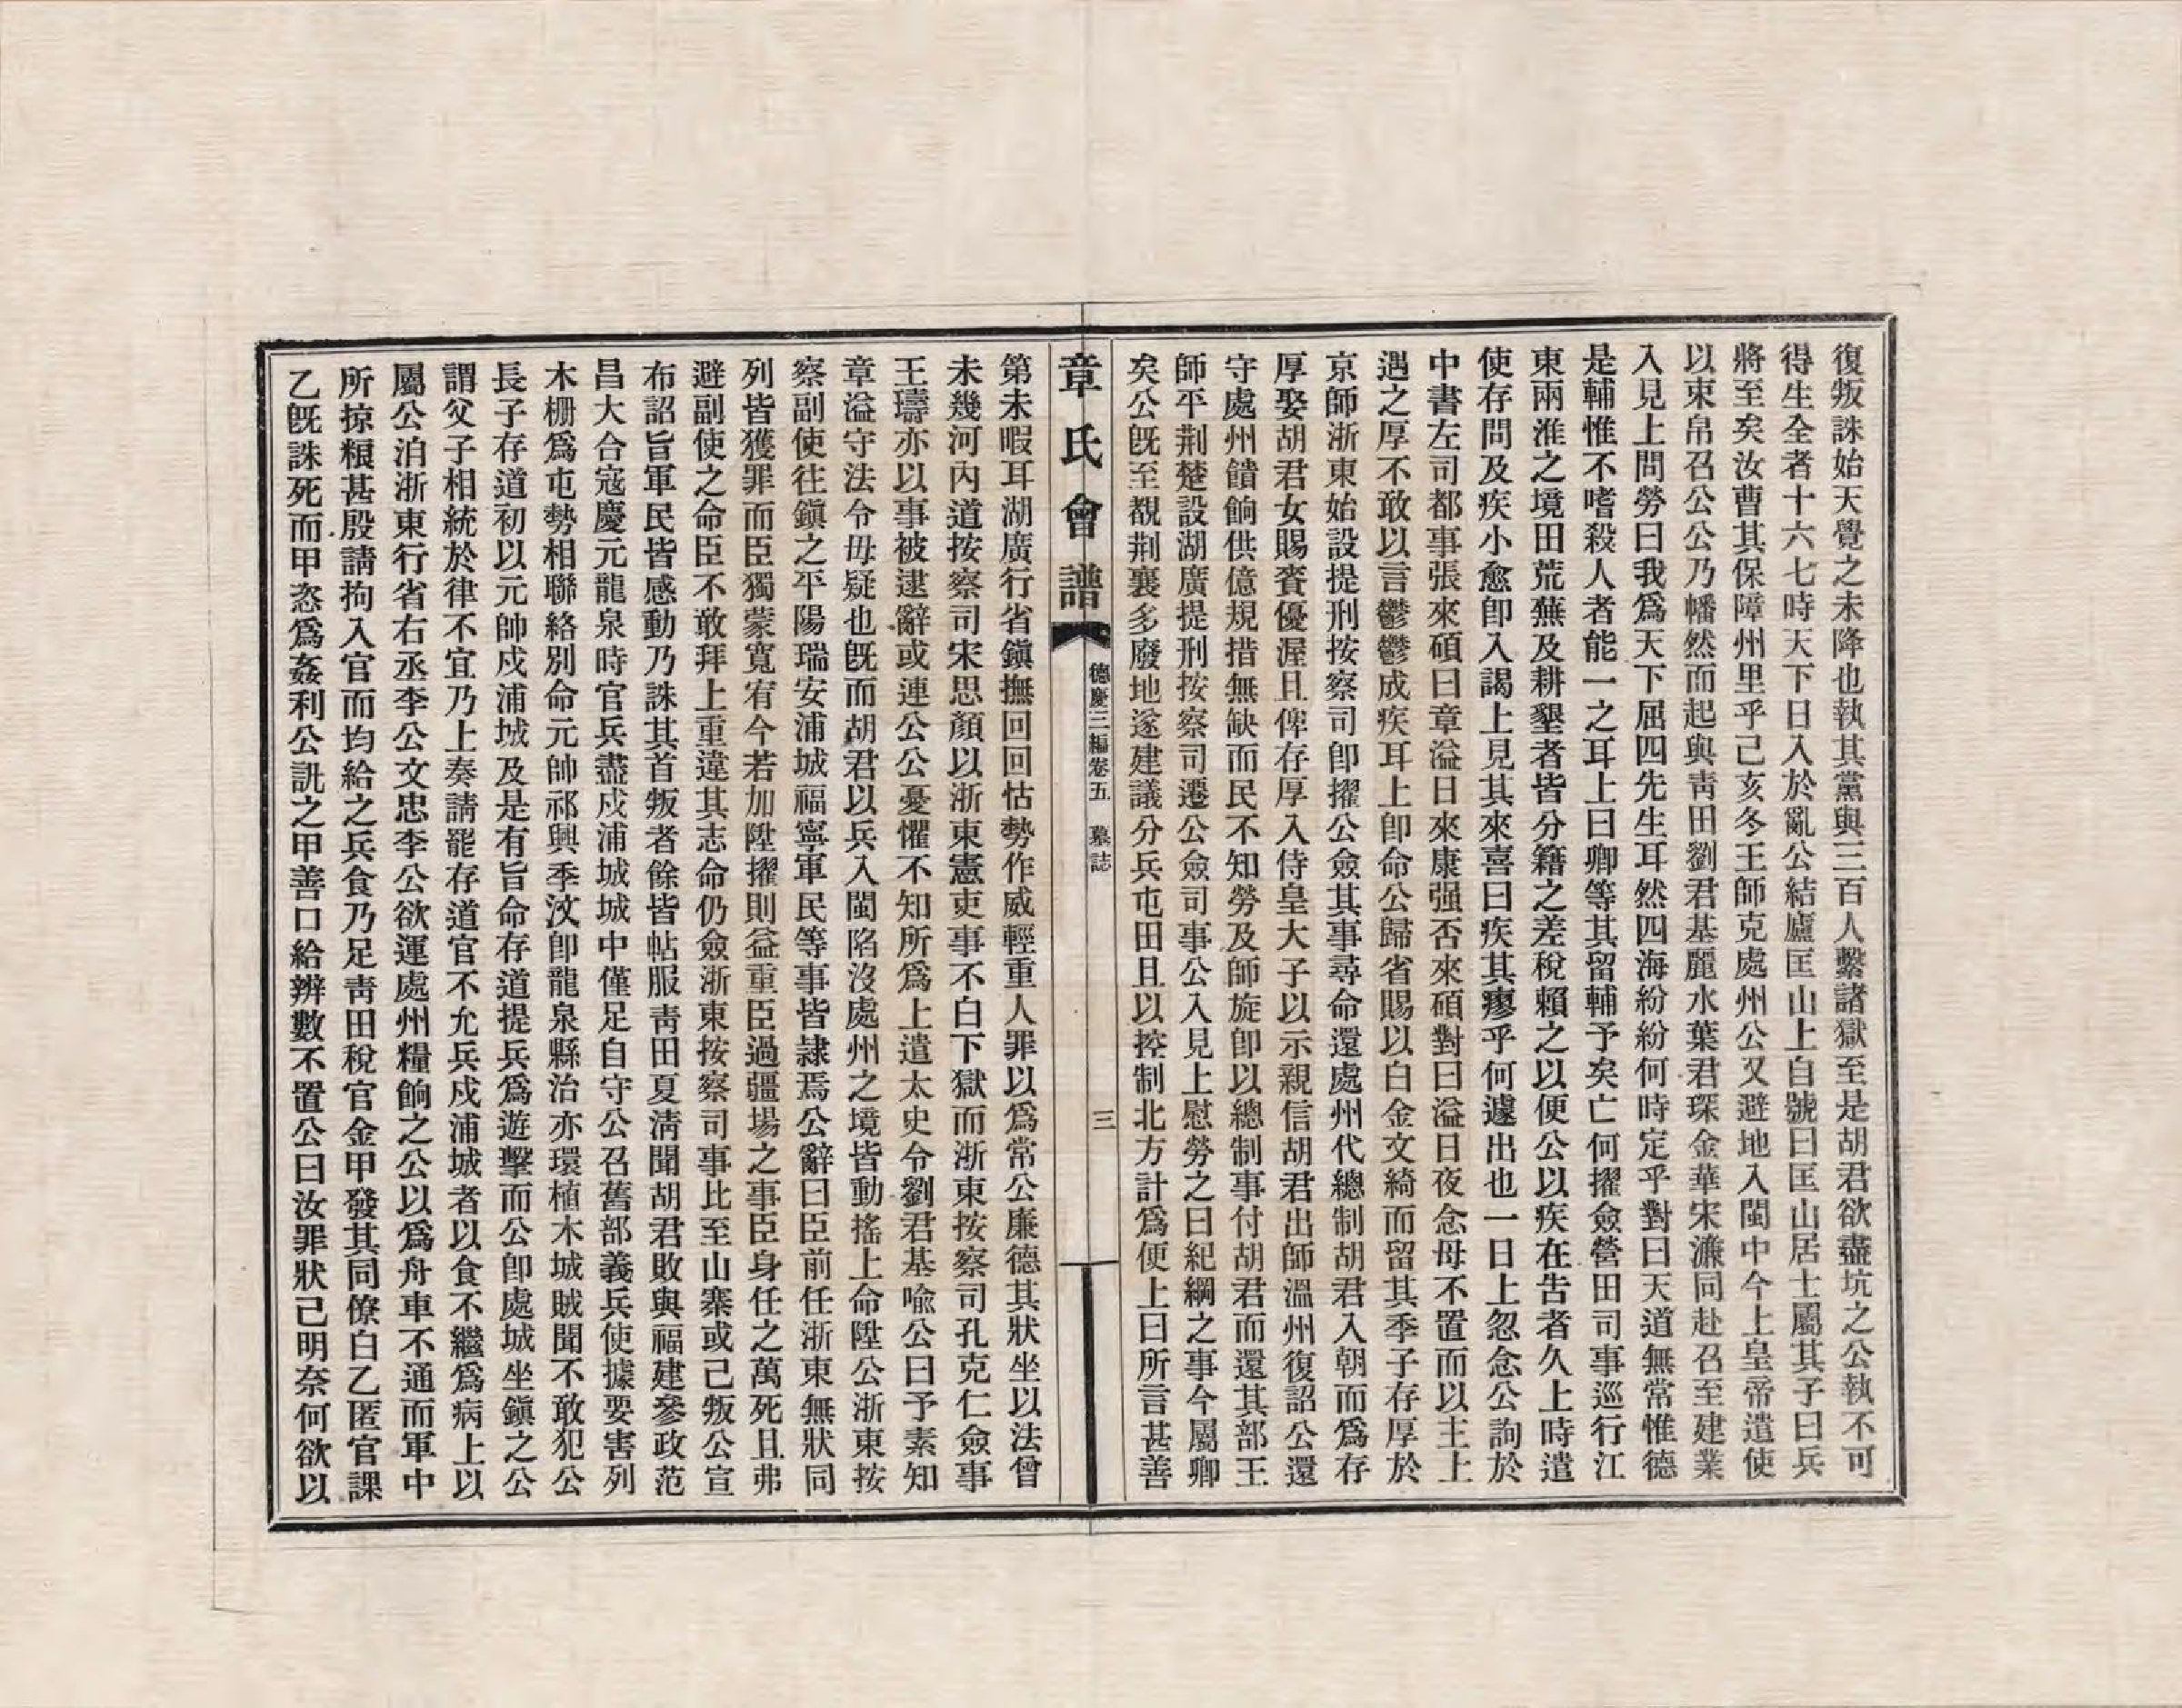 復叛誅始天覺之未降也執其黨與三百人繫諸獄至是胡君欲盡坑之公執不可
得生全者十六七時天下日入於亂公結廬匡山上自號曰匡山居士屬其子曰兵
將至矣汝曹其保障州里乎己亥冬王師克處州公又避地入閩中今上皇帝遣使
以束帛召公公乃幡然而起與靑田劉君基麗水葉君琛金華宋濂同赴召至建業
入見上問勞曰我爲天下屈四先生耳然四海紛紛何時定乎對曰天道無常惟德
是輔惟不嗜殺人者能一之耳上曰卿等其留輔予矣亡何擢僉營田司事巡行江
東兩淮之境田荒蕪及耕墾者皆分籍之差稅賴之以便公以疾在告者久上時遣
使存問及疾小愈卽入謁上見其來喜曰疾其瘳乎何遽出也一日上忽念公詢於
中書左司都事張來碩曰章溢日來康强否來碩對曰溢日夜念母不置而以主上
遇之厚不敢以言鬱鬱成疾耳上卽命公歸省賜以白金文綺而留其季子存厚於
京師浙東始設提刑按察司卽擢公僉其事尋命還處州代總制胡君入朝而爲存
厚娶胡君女賜賚優渥且俾存厚入侍皇大子以示親信胡君出師溫州復詔公還
守處州饋餉供億規措無缺而民不知勞及師旋卽以總制事付胡君而還其部王
師平荆楚設湖廣提刑按察司遷公僉司事公入見上慰勞之曰紀綱之事今屬卿
矣公旣至覩荆襄多廢地遂建議分兵屯田且以控制北方計爲便上曰所言甚善
章氏會譜
德慶三編卷五 墓誌
三
第未暇耳湖廣行省鎭撫回回怙勢作威輕重人罪以爲常公廉德其狀坐以法曾
未幾河內道按察司宋思顏以浙東憲吏事不白下獄而浙東按察司孔克仁僉事
王璹亦以事被逮辭或連公公憂懼不知所爲上遣太史令劉君基喩公曰予素知
章溢守法令毋疑也旣而胡君以兵入閩陷沒處州之境皆動搖上命陞公浙東按
察副使往鎭之平陽瑞安浦城福寧軍民等事皆隷焉公辭曰臣前任浙東無狀同
列皆獲罪而臣獨蒙寬宥今若加陞擢則益重臣過疆場之事臣身任之萬死且弗
避副使之命臣不敢拜上重違其志命仍僉浙東按察司事比至山寨或己叛公宣
布詔旨軍民皆感動乃誅其首叛者餘皆帖服靑田夏淸聞胡君敗與福建參政范
昌大合寇慶元龍泉時官兵盡戍浦城城中僅足自守公召舊部義兵使據要害列
木栅爲屯勢相聯絡別命元帥祁興季汶卽龍泉縣治亦環植木城賊聞不敢犯公
長子存道初以元帥戍浦城及是有旨命存道提兵爲遊擊而公卽處城坐鎭之公
謂父子相統於律不宜乃上奏請罷存道官不允兵戍浦城者以食不繼爲病上以
屬公泊浙東行省右丞李公文忠李公欲運處州糧餉之公以爲舟車不通而軍中
所掠粮甚殷請拘入官而均給之兵食乃足靑田稅官金甲發其同僚白乙匿官課
乙旣誅死而甲恣爲姦利公訊之甲善口給辨數不置公曰汝罪狀己明奈何欲以